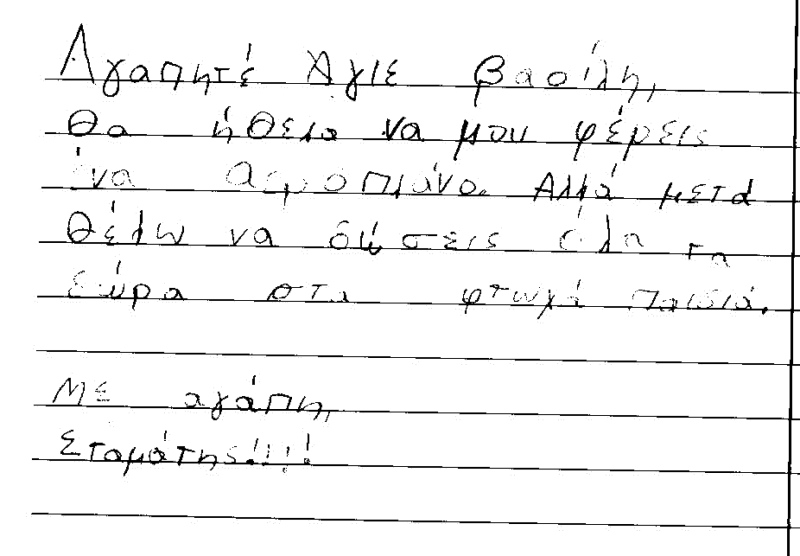 Αγαπητέ Άγιε βασίλη,
Θα ήθελα να μου φέρεις
ένα αεροπλάνο. Αλλά μετά
θέλω να δώσεις όλα τα
δώρα στα φτωχά παιδιά.
Με αγάπη,
Σταμάτης!!!!